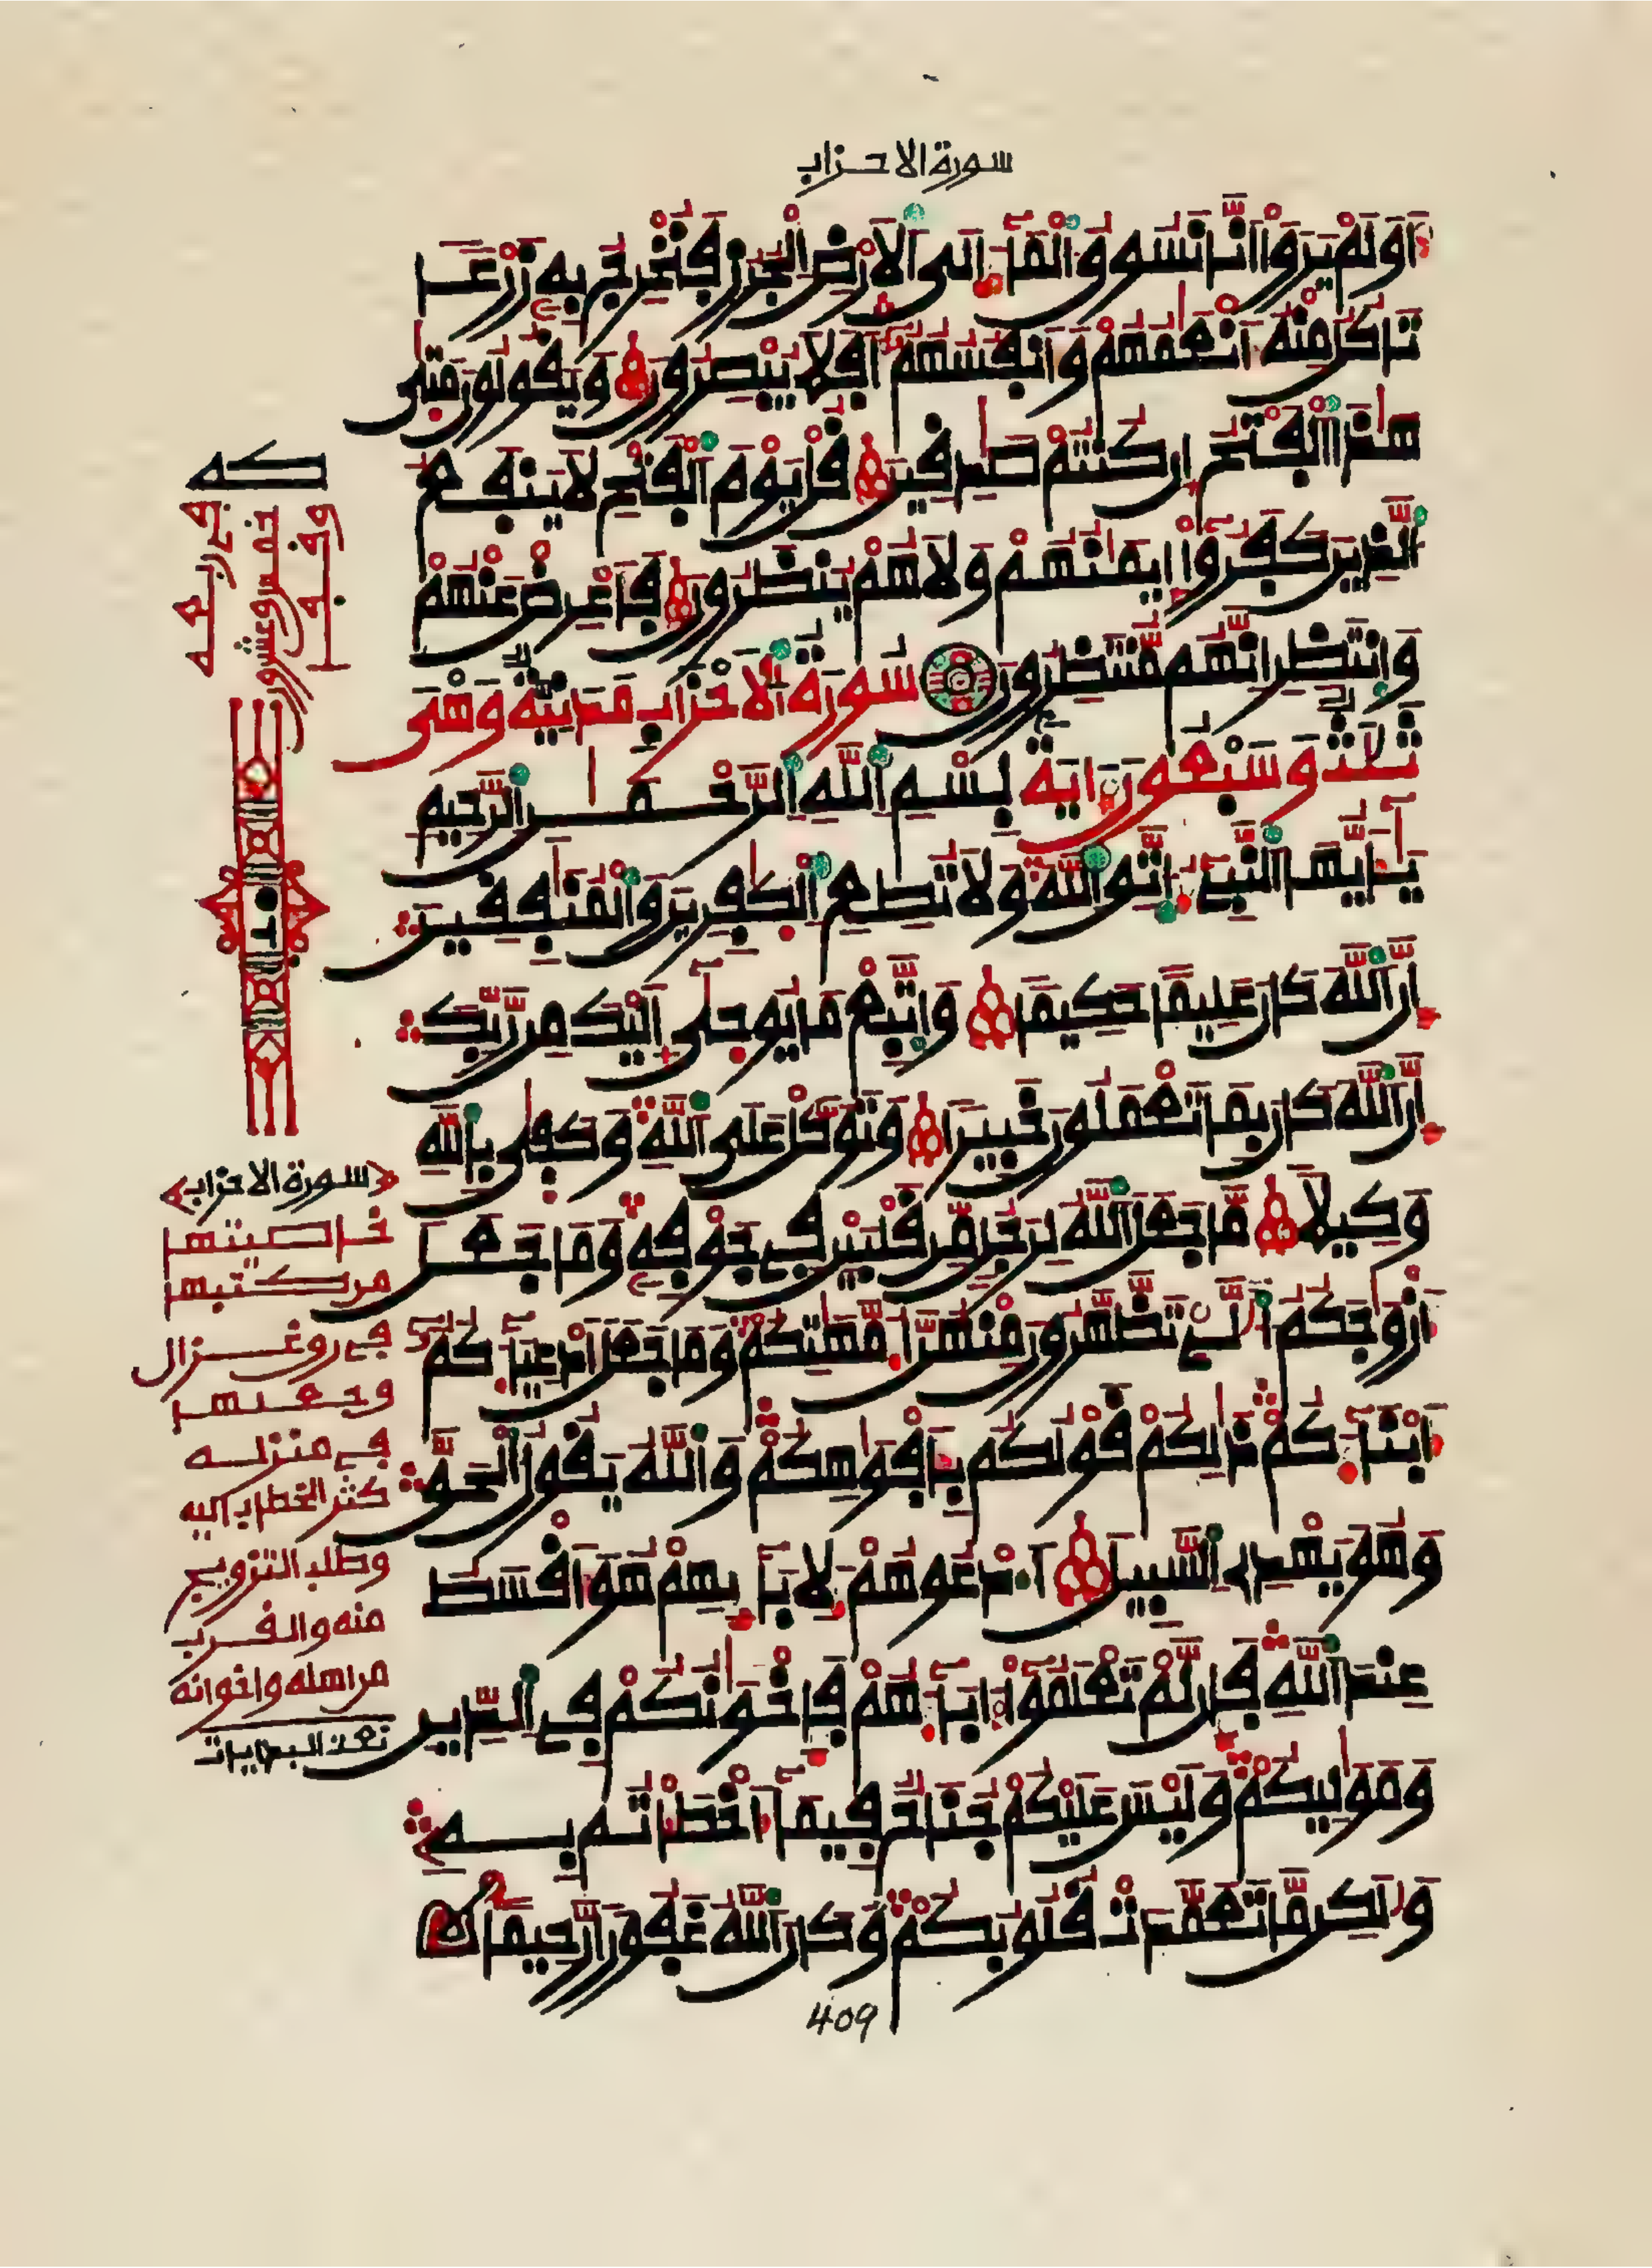 سورة الاحزاب
اَوَلَمْ يَرَوْا اَنَّا نَسُوقُ الْمَآءَ اِلَى الَارْضِ الْجُرُزِ فَنُخْرِجُ بِهِ زَرْعًا
تَاكُلُ مِنْهُ أَنْعَٰمُهُمْ وَأَنفُسُهُمْ أَفَلَا يُبْصِرُونَ وَيَقُولُونَ مَتَىٰ
هَٰذَا الْفَتْحُ إِن كُنتُمْ صَٰدِقِينَ قُلْ يَوْمَ الْفَتْحِ لَا يَنفَعُ
الَّذِينَ كَفَرُوا إِيمَٰنُهُمْ وَلَا هُمْ يُنظَرُونَ فَأَعْرِضْ عَنْهُمْ
وَانتَظِرِ انَّهُم مُّنتَظِرُونَ سُورَةُ الَاحْزَابِ مَدَنِيَّةٌ وَهْيَ
ثَلَٰثٌ وَسَبْعُونَ ءَايَةً بِسْمِ اللَّهِ الرَّحْمَٰنِ الرَّحِيمِ
يَٰأَيُّهَا النَّبِيءُ اتَّقِ اللَّهَ وَلَا تُطِعِ الْكَٰفِرِينَ وَالْمُنَٰفِقِينَ
إِنَّ اللَّهَ كَانَ عَلِيمًا حَكِيمًا وَاتَّبِعْ مَا يُوحَىٰ إِلَيْكَ مِن رَّبِّكَ
إِنَّ اللَّهَ كَانَ بِمَا تَعْمَلُونَ خَبِيرًا وَتَوَكَّلْ عَلَى اللَّهِ وَكَفَىٰ بِاللَّهِ
وَكِيلًا مَّا جَعَلَ اللَّهُ لِرَجُلٍ مِّن قَلْبَيْنِ فِي جَوْفِهِ وَمَا جَعَلَ
أَزْوَٰجَكُمُ الَّٰـےْ تَظَّهَّرُونَ مِنْهُنَّ أُمَّهَٰتِكُمْ وَمَا جَعَلَ أَدْعِيَآءَكُمُ
أَبْنَآءَكُمْ ذَٰلِكُمْ قَوْلُكُم بِأَفْوَٰهِكُمْ وَاللَّهُ يَقُولُ الْحَقَّ
وَهُوَ يَهْدِي السَّبِيلَ اُدْعُوهُمْ لِأَبَآئِهِمْ هُوَ أَقْسَطُ
عِندَ اللَّهِ فَإِن لَّمْ تَعْلَمُوا ءَابَآءَهُمْ فَإِخْوَٰنُكُمْ فِي الدِّينِ
وَمَوَٰلِيكُمْ وَلَيْسَ عَلَيْكُمْ جُنَاحٌ فِيمَآ أَخْطَأْتُم بِهِ
وَلَٰكِن مَّا تَعَمَّدَتْ قُلُوبُكُمْ وَكَانَ اللَّهُ غَفُورًا رَّحِيمًا
409
وقف
خمس وعشرون
في ربعه
سورة الاحزاب
خاصيتها
من كتبها
في رق غزال
وجعلها
في منزله
كثر الخطاب اليه
وطلب التزويج
منه والقرب
من اهله واخوانه